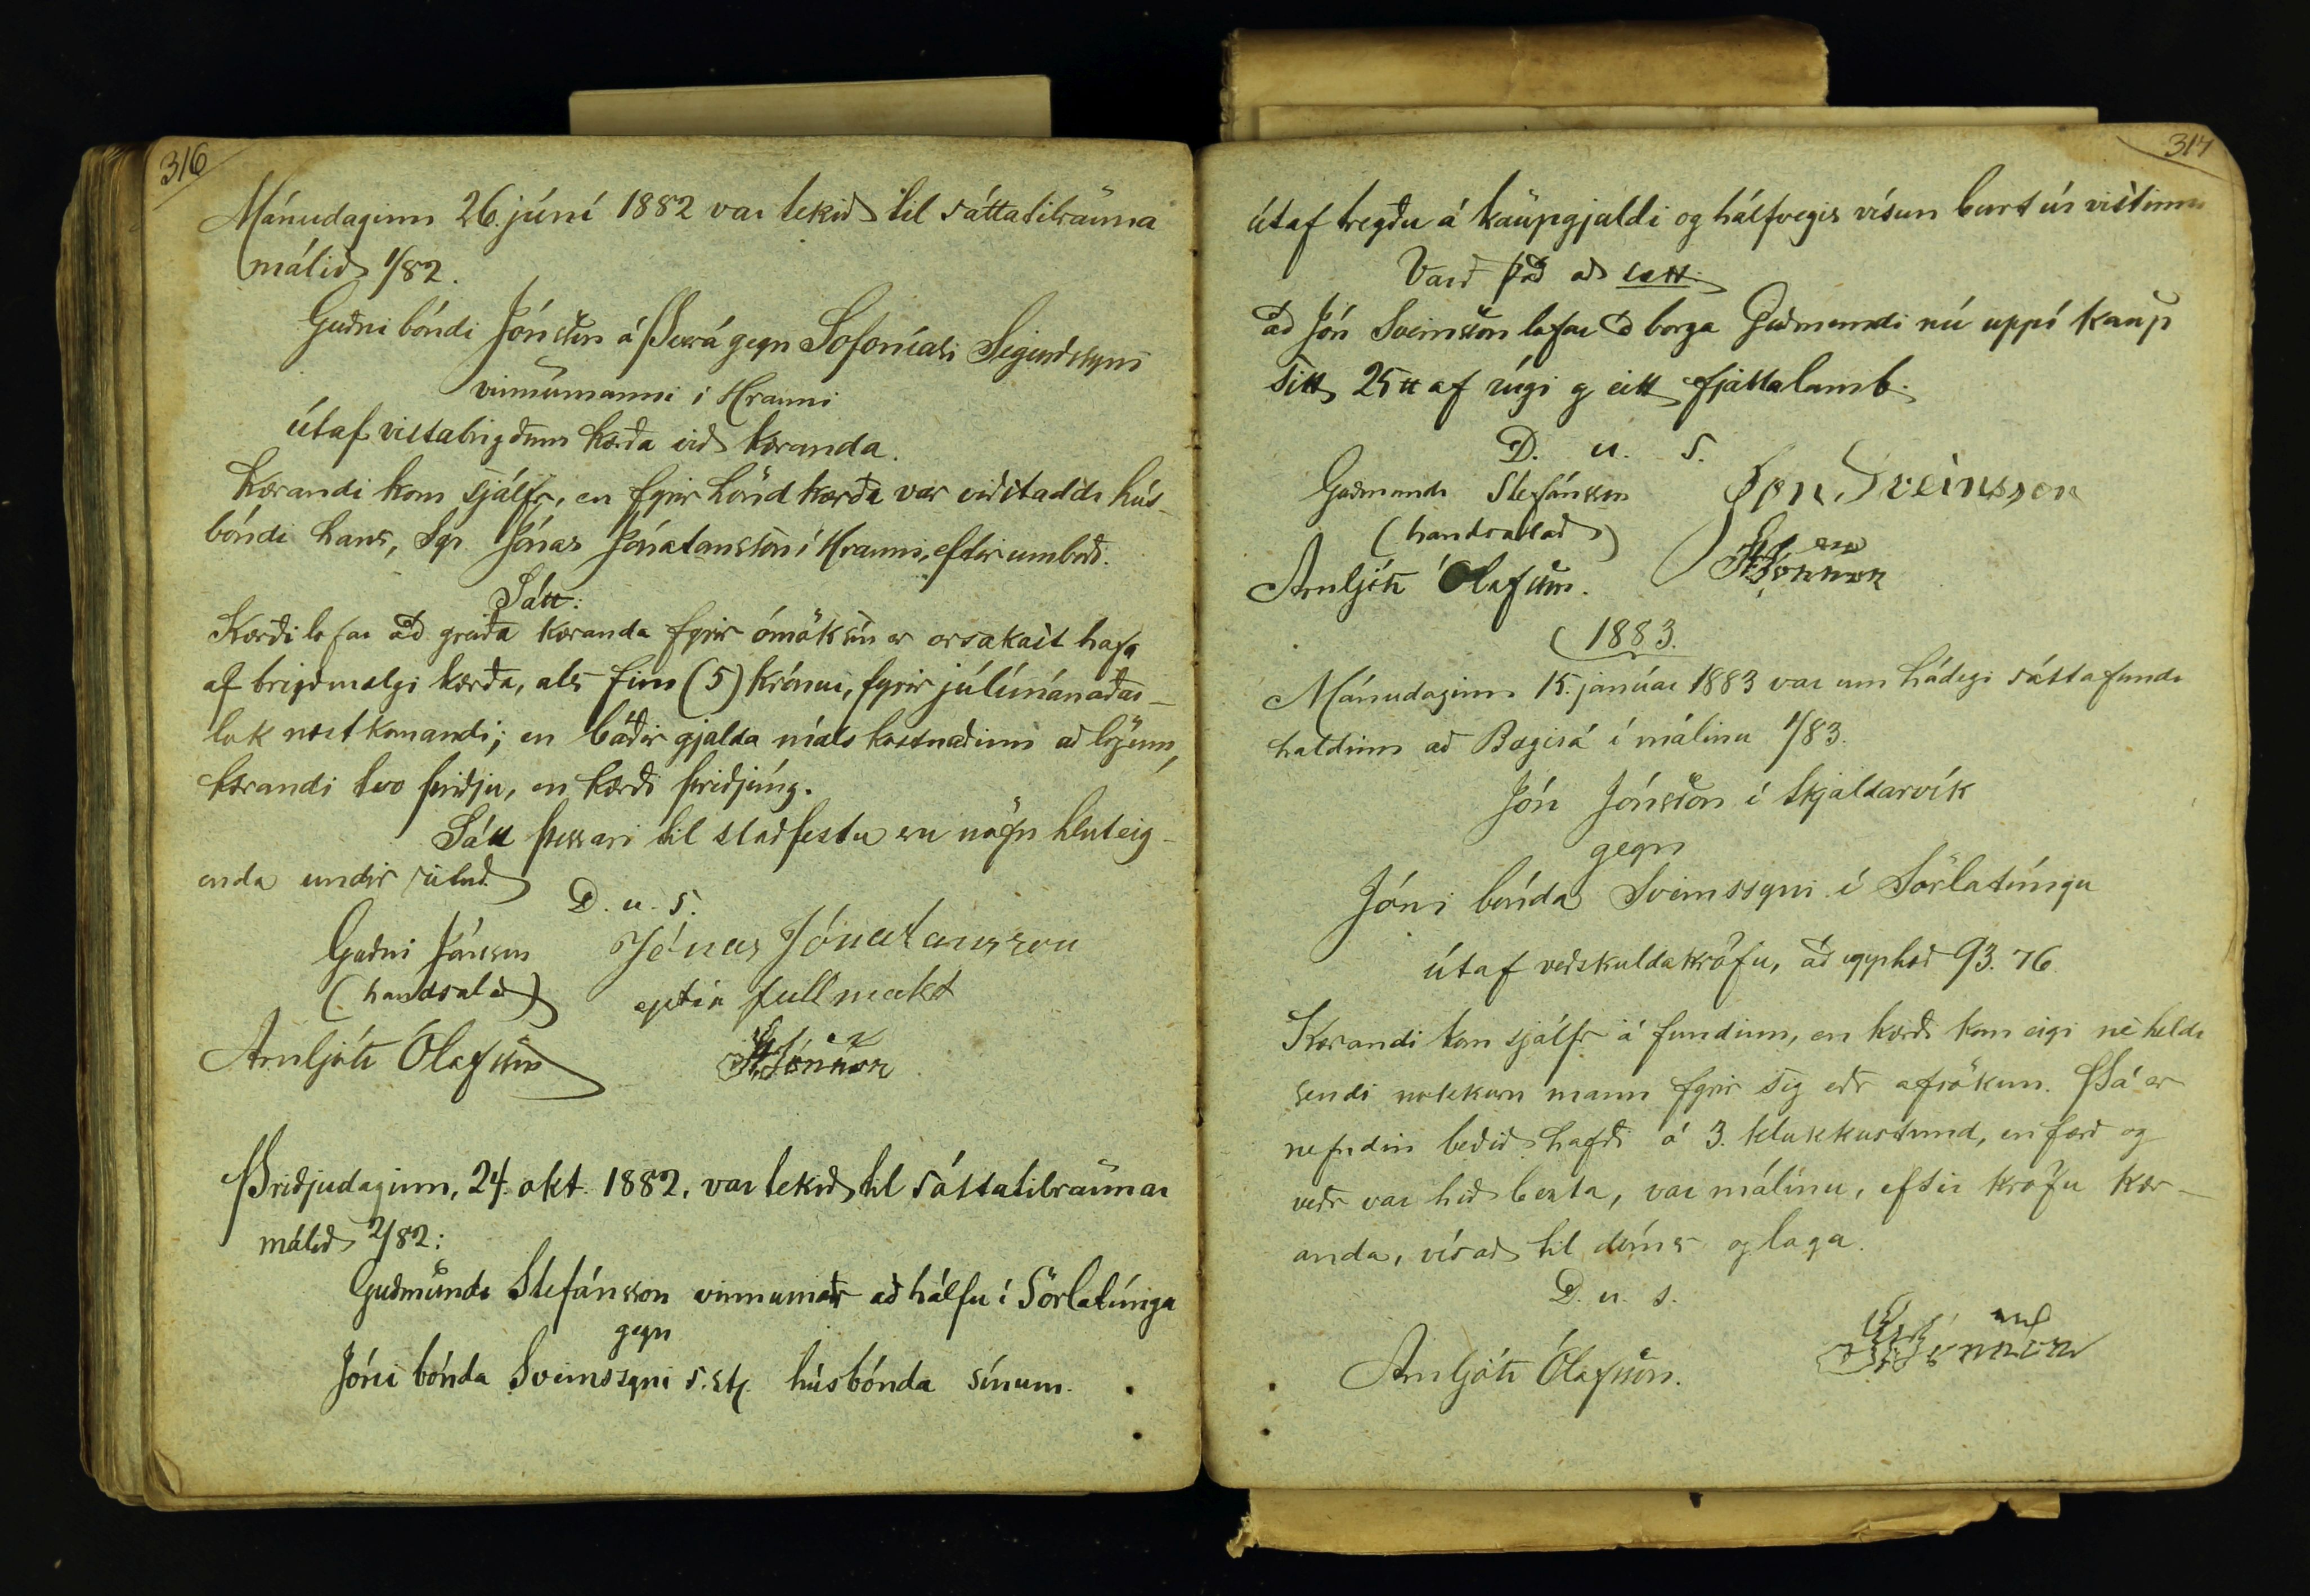 316
Mánudaginn 26. júní 1882 var tekið til sáttatilrauna
málið 1/82.
Guðni bóndi Jónsson á Þverá gegn Sofoníasi Sigurðssyni
vinnumanni i Hrauni
útaf vistabrigðum kærða við kæranda.
Kærandi kom sjálfr, en fyrir hönd kærða var viðstaddr hús-
bóndi hans, Sgr. Jónas Jónatansson í Hrauni, eftir umboði.
Sátt:
Kærði lofar að greiða kæranda fyrir ómök sín er orsakast hafa
af brigðmælgi kærða, als fim (5) krónur, fyrir júlímánaðar-
lok næstkomandi; en báðir gjalda málskostnaðinn að lögum,
kærandi tvo þriðju, en kærði þriðjúng.
Sátt þessari til staðfestu eru nöfn hluteig-
enda undir rituð.
D. u. s.
Guðni Jónsson Jónas Jónatansson
(handsalað) eptir fullmakt
Arnljótr Ólafsson
Þriðjudaginn, 24. okt. 1882, var tekið til sáttatilraunar
málið 2/82:
Guðmundr Stefánsson vinnumaðr að hálfu í Sörlatúnga
gegn
Jóni bónda Sveinssyni s. st. húsbónda sínum.
317
útaf tregðu á kaupgjaldi og hálfvegis vísun burt úr vistinni
Varð það að sætt.
að Jón Sveinsson lofar að borga Guðmundi nú uppí kaup
sitt 25 ℔ af rúgi og eitt fjallalamb.
D. u. s.
Guðmundr Stefánsson Jón Sveinsson
(handsalað)
Arnljótr Ólafsson.
1883.
Mánudaginn 15. janúar 1883 var um hádegi sáttafundr
haldinn að Bægisá í málinu 1/83.
Jón Jónsson í Skjaldarvík
gegn
Jóni bónda Sveinssyni í Sörlatúngu
útaf veðskuldakröfu, að upphæð 93.76
Kærandi kom sjálfr á fundinn, en kærði kom eigi né heldr
sendi nokkurn mann fyrir sig eðr afsökun. Þá er
nefndin beðið hafði á 3. klukkustund, en færð og
veðr var hið bezta, var málinu, eftir kröfu kær-
anda, vísað til dóms og laga.
D. u. s.
Arnljótr Ólafsson.